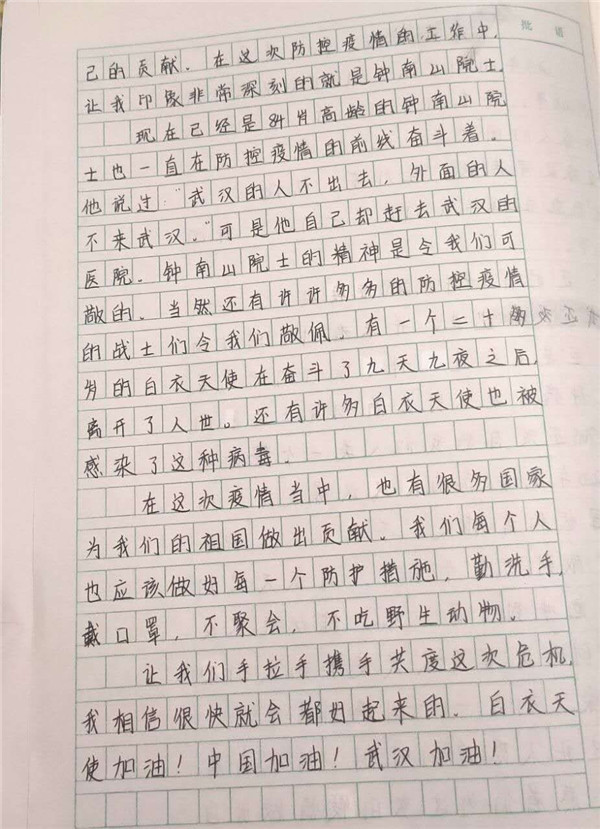 批语
己的贡献．在这次防控疫情的工作中，
让我印像非常深刻的就是钟南山院士．
现在已经是84岁高龄的钟南山院
士也一直在防控疫情的前线奋斗着．
他说过：“武汉的人不出去，外面的人
不来武汉。”可是他自己却赶去武汉的
医院．钟南山院士的精神是令我们可
敬的．当然还有许许多多的防控疫情
的战士们令我们敬佩．有一个二十多
岁的白衣天使在奋斗了九天九夜之后，
离开了人世。还有许多白衣天使也被
感染了这种病毒．
在这次疫情当中，也有很多国家
为我们的祖国做出贡献。我们每个人
也应该做好每一个防护措施，勤洗手，
戴口罩，不聚会，不吃野生动物。
让我们手拉手携手共度这次危机，
我相信很快就会都好起来的．白衣天
使加油！中国加油！武汉加油！